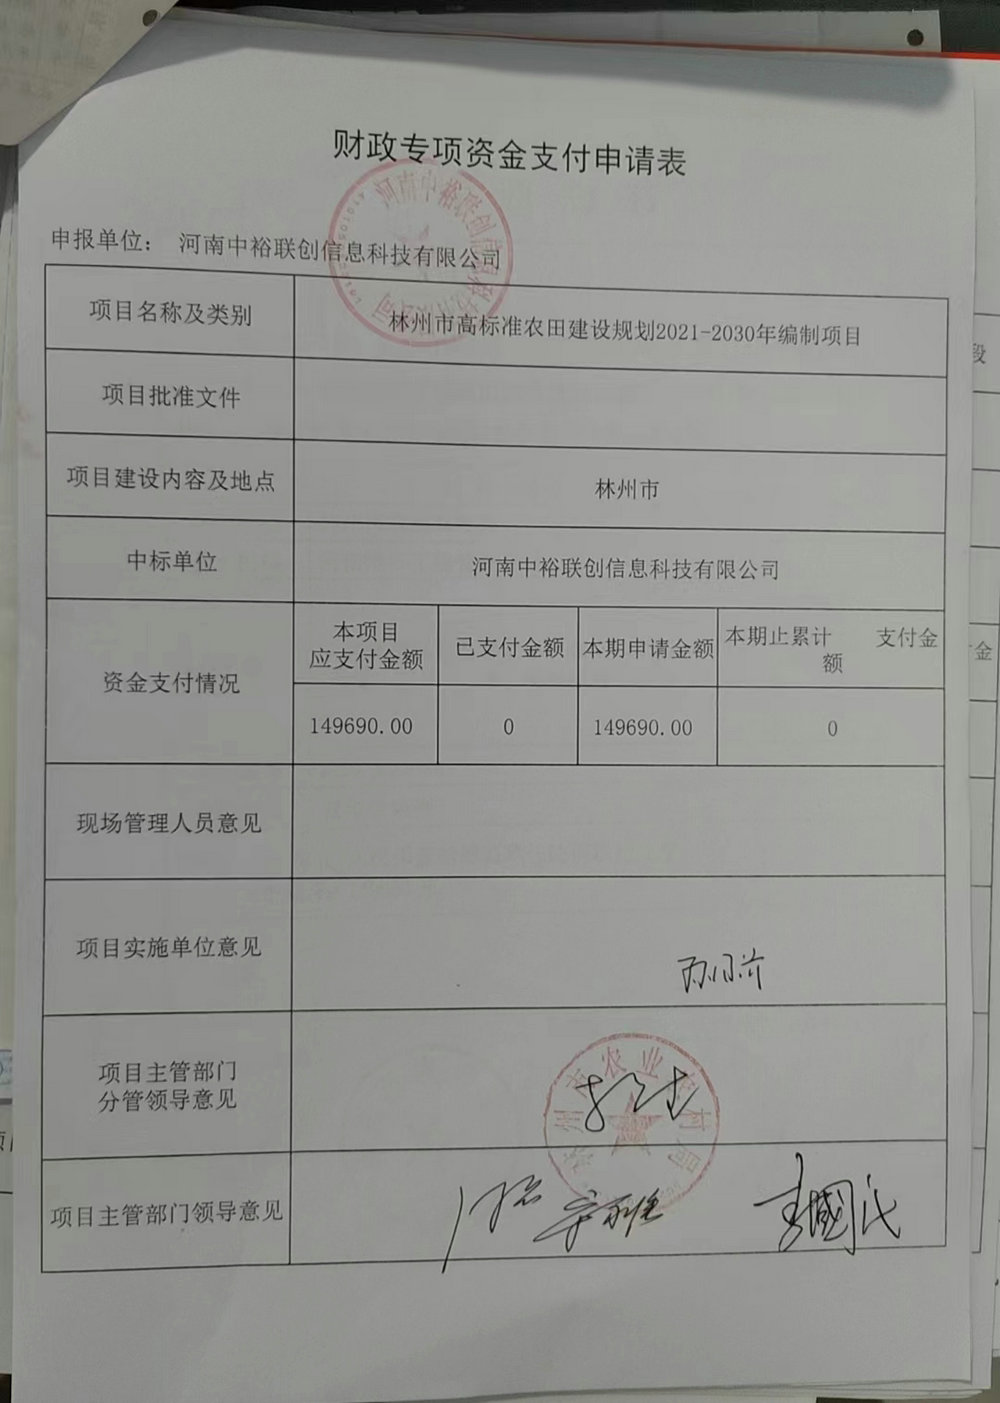 财政专项资金支付申请表
申报单位： 河南中裕联创信息科技有限公司
项目名称及类别
林州市高标准农田建设规划2021-2030年编制项目
项目批准文件
项目建设内容及地点
林州市
中标单位
河南中裕联创信息科技有限公司
资金支付情况
本项目
应支付金额
已支付金额
本期申请金额
本期止累计 支付金
额
149690.00
0
149690.00
0
现场管理人员意见
项目实施单位意见
项目主管部门
分管领导意见
林州市农业农村局
项目主管部门领导意见
河南中裕联创信息科技有限公司
段
金